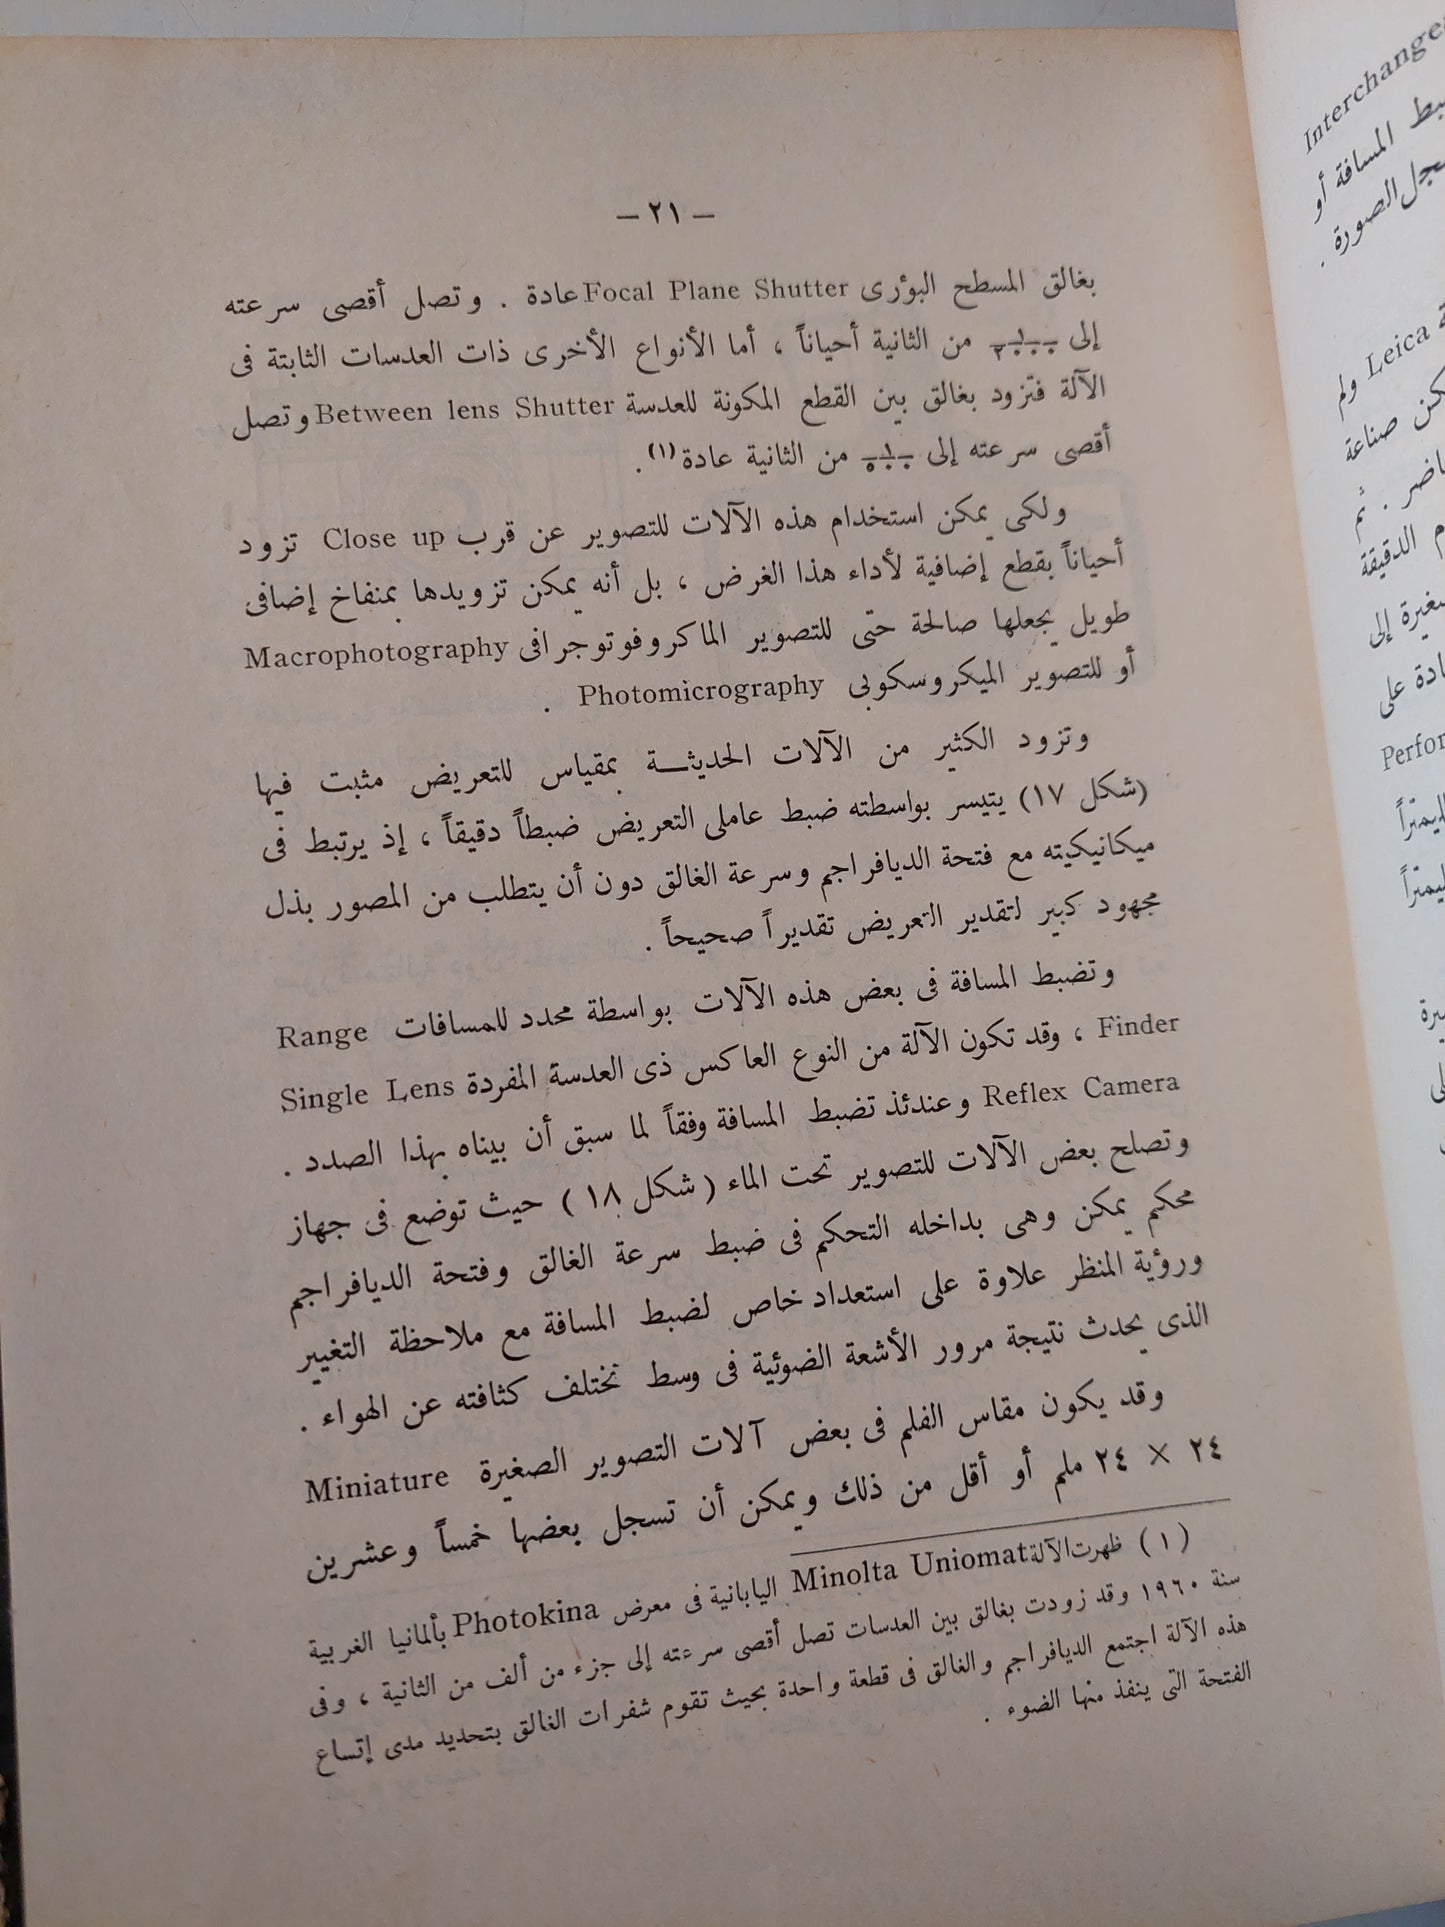 — ٢١ —
بغالق المسطح البؤرى Focal Plane Shutter عادة . وتصل أقصى سرعته
إلى من الثانية أحياناً ، أما الأنواع الأخرى ذات العدسات الثابتة فى
الآلة فتزود بغالق بين القطع المكونة للعدسة Between lens Shutter وتصل
أقصى سرعته إلى من الثانية عادة (١) .
ولكى يمكن استخدام هذه الآلات للتصوير عن قرب Close up تزود
أحياناً بقطع إضافية لأداء هذا الغرض ، بل أنه يمكن تزويدها بمنفاخ إضافى
طويل يجعلها صالحة حتى للتصوير الماكروفوتوجرافى Macrophotography
أو للتصوير الميكروسكوبى Photomicrography .
وتزود الكثير من الآلات الحديثة بمقياس للتعريض مثبت فيها
(شكل ١٧) يتيسر بواسطته ضبط عاملى التعريض ضبطاً دقيقاً ، إذ يرتبط فى
ميكانيكيته مع فتحة الديافراجم وسرعة الغالق دون أن يتطلب من المصور بذل
مجهود كبير لتقدير التعريض تقديراً صحيحاً .
وتضبط المسافة فى بعض هذه الآلات بواسطة محدد للمسافات Range
Finder ، وقد تكون الآلة من النوع العاكس ذى العدسة المفردة Single Lens
Reflex Camera وعندئذ تضبط المسافة وفقاً لما سبق أن بيناه بهذا الصدد .
وتصلح بعض الآلات للتصوير تحت الماء ( شكل ١٨ ) حيث توضع فى جهاز
محكم يمكن وهى بداخله التحكم فى ضبط سرعة الغالق وفتحة الديافراجم
ورؤية المنظر علاوة على استعداد خاص لضبط المسافة مع ملاحظة التغيير
الذى يحدث نتيجة مرور الأشعة الضوئية فى وسط تختلف كثافته عن الهواء .
وقد يكون مقاس الفلم فى بعض آلات التصوير الصغيرة Miniature
٢٤ × ٢٤ ملم أو أقل من ذلك ويمكن أن تسجل بعضها خمساً وعشرين
( ١ ) ظهرت الآلة Minolta Uniomat اليابانية فى معرض Photokina بألمانيا الغربية
سنة ١٩٦٠ وقد زودت بغالق بين العدسات تصل أقصى سرعته إلى جزء من ألف من الثانية ، وفى
هذه الآلة اجتمع الديافراجم والغالق فى قطعة واحدة بحيث تقوم شفرات الغالق بتحديد مدى إتساع
الفتحة التى ينفذ منها الضوء .
المسافة أو
الصورة .
Leica ولم
صناعة
ثم
الدقيقة
إلى
على